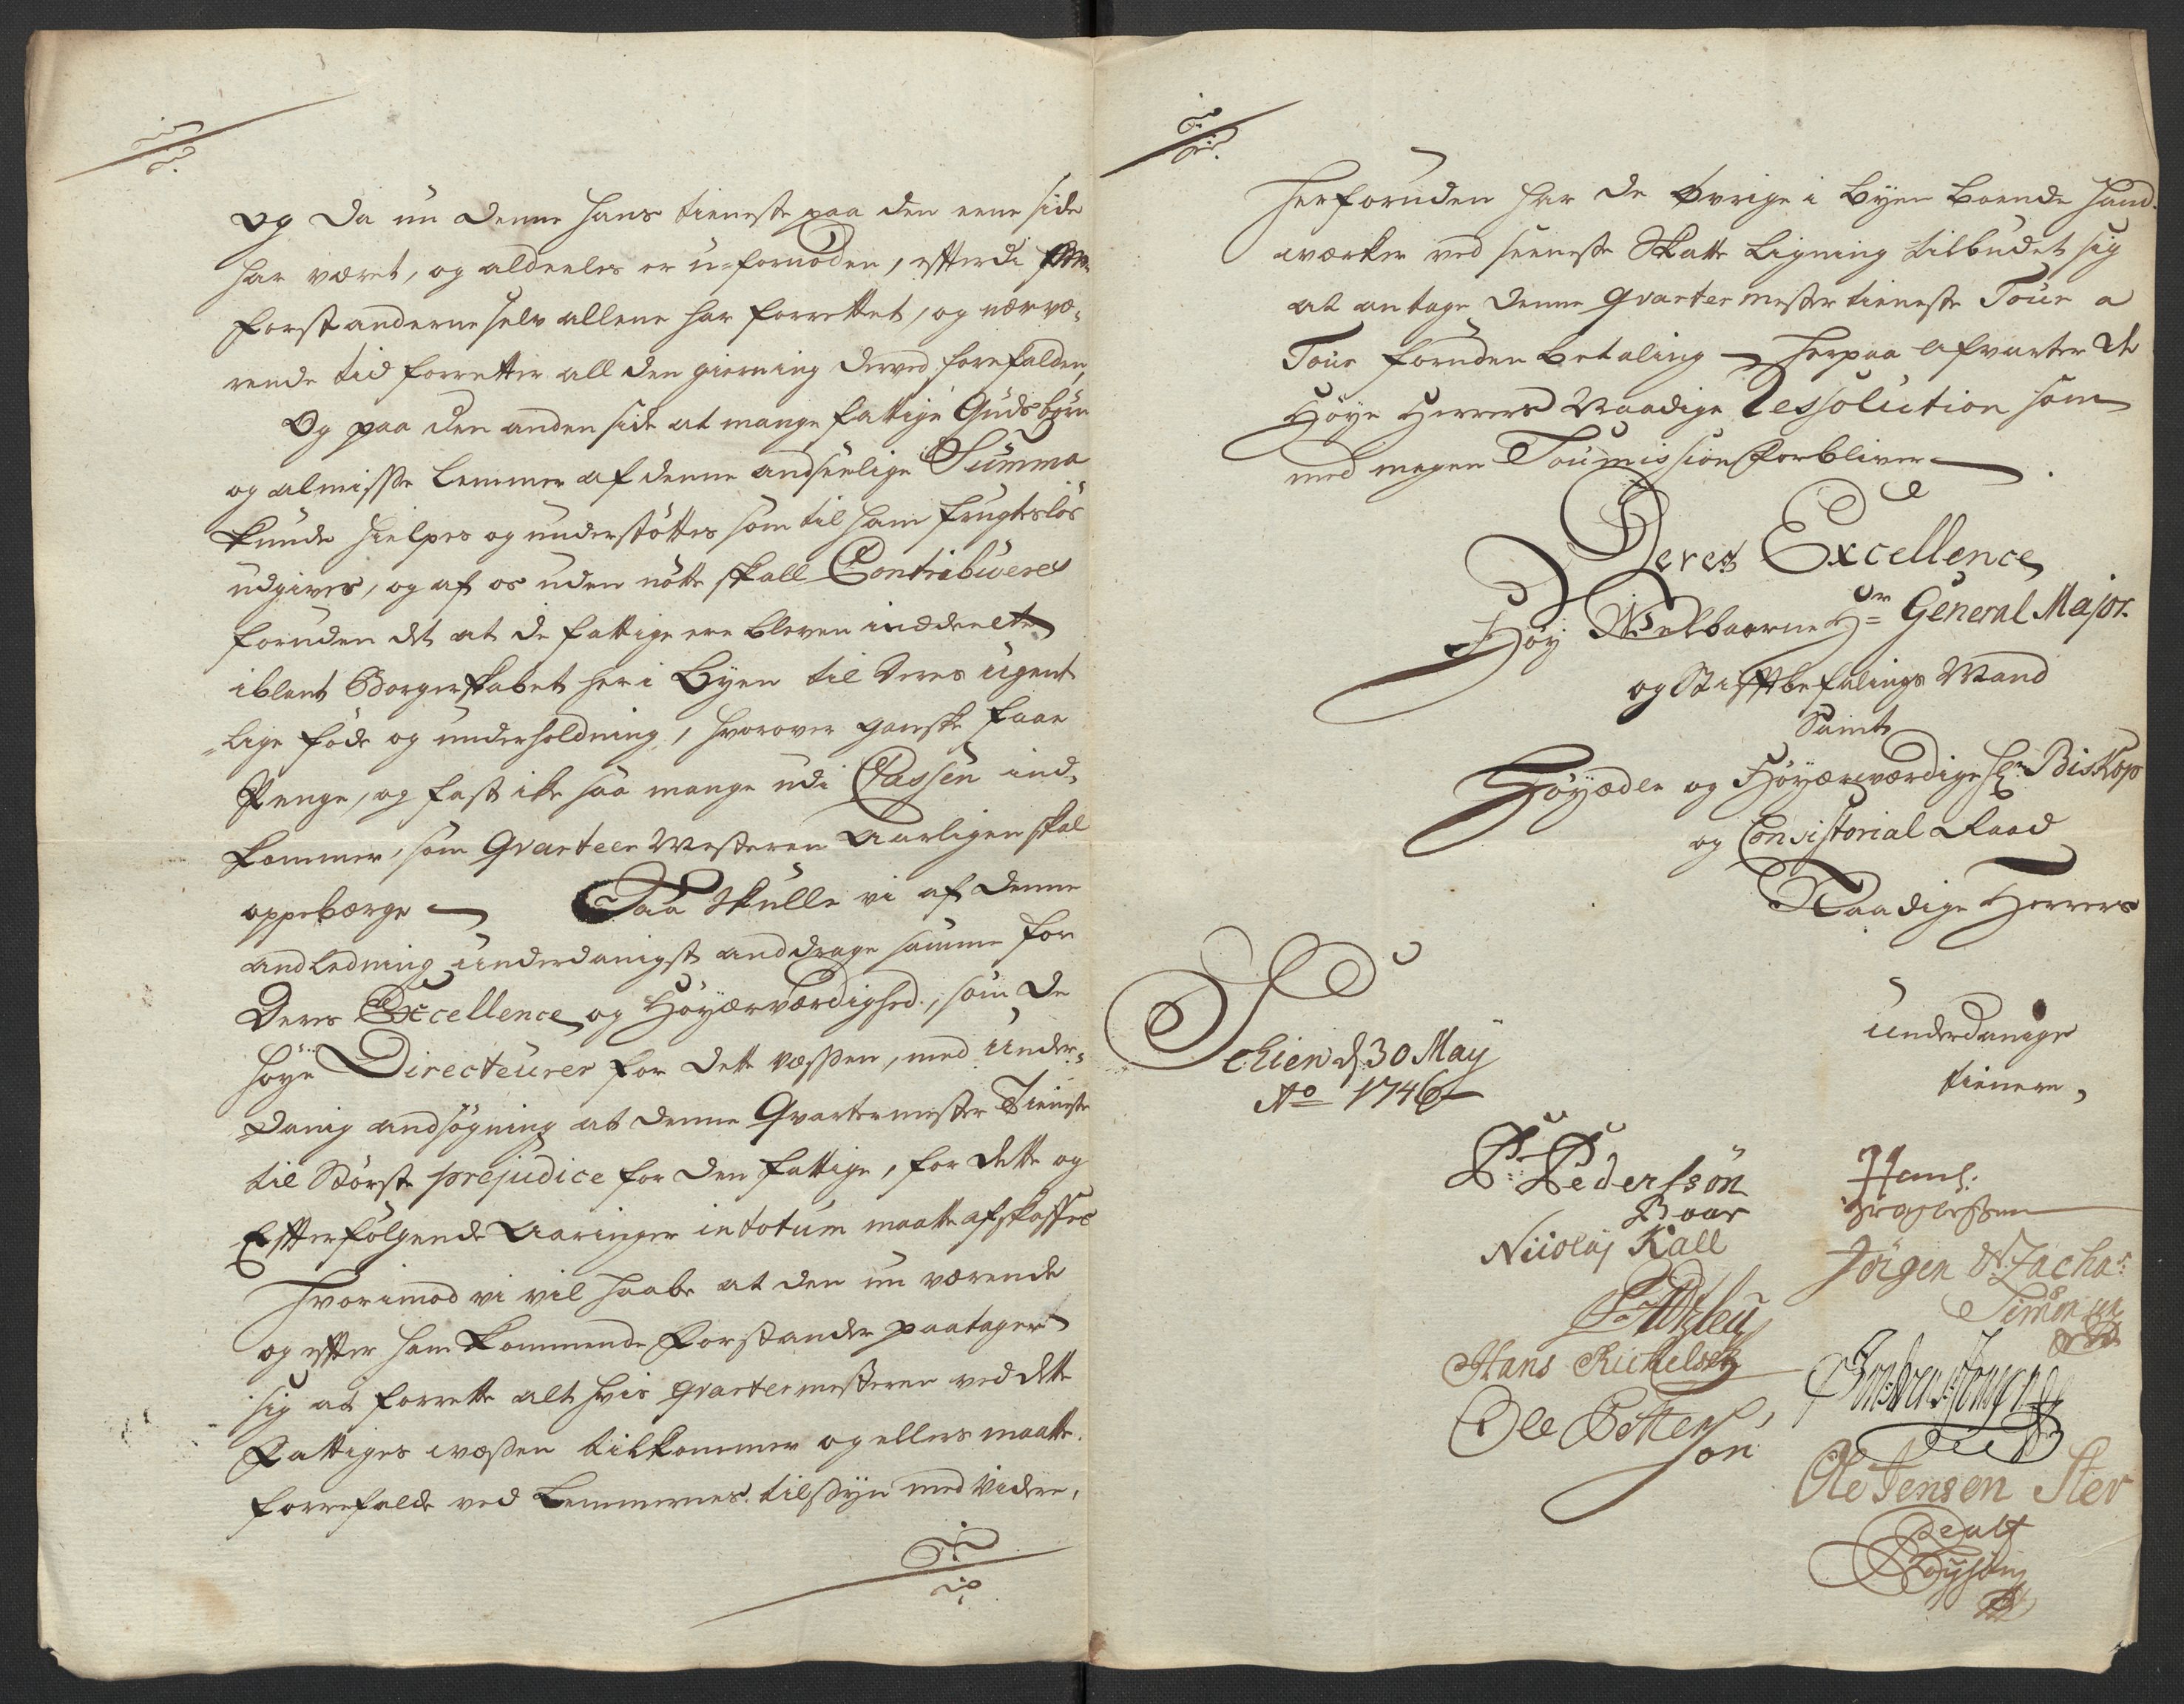 og da nu denne hans tieneste paa den eene side
har været, og aldeeles er u-fornøden, efterdi
Forstanderne selv allene har forrettet, og nærvæ-
rende tid forretter all den gierning derved forefalden,
Og paa den anden side at mange fattige Guds børn
og almisse Lemmer af denne andseelige Summa
kunde hielpes og understøttes som til ham frugtesløs
udgives, og af os uden nøtte skall Contribuere
foruden det at de fattige ere bleven inddeelte
iblant Borgerskabet her i Byen til deres ugent
-lige føde og underholdning, hvorover ganske faae
Penge, og fast ikke saa mange udi Cassen ind-
kommer, som Qvarteer Mesteren Aarligen skal
oppebærge Saa Skulle vi af denne
andledning underdanigst anddrage samme for
Deres Excellence og Høyærværdighed, som de
høye Directeurer for dette væssen, med under-
danig andsøgning at denne Qvartermester Tieneste
til Størst prejudice for den fattige, for dette og
Efterfølgende Aaringer in totum maatte afskaffes
Hvorimod vi vil haabe at den nu værende
og efter ham kommende Forstander paatager
sig at forrette alt hvis qvartermesteren ved dette
Fattiges wæsen tilkommer og ellers maatte
forrefalde ved Lemmernes tilsyn med videre,
Herforuden har de øvrige i Byen boende Hand-
wærker ved seeneste Skatte Ligning tilbudet sig
at antage denne qvartermester tieneste Tour a
Tour foruden betaling herpaa afvarter de
Høye Herrers Naadige Ressolution som
med megen Soumission forbliver
Deres Excellence
Høy Welbaarne Hr General Major
og Stiftbefalings Mand
Samt
Høyædle og Høyærværdige Hr Biskop
og Consistorial Raad
Naadige Herrers
underdanige
tienere,
Schien d 30 May
Ao 1746
P: Pedersøn
Boar
Nicolaj Kall
Hans
Jørgen N: Zachar:
Simon
Hans Michelsen
Ole Petter
søn
Ole Jensen Ster